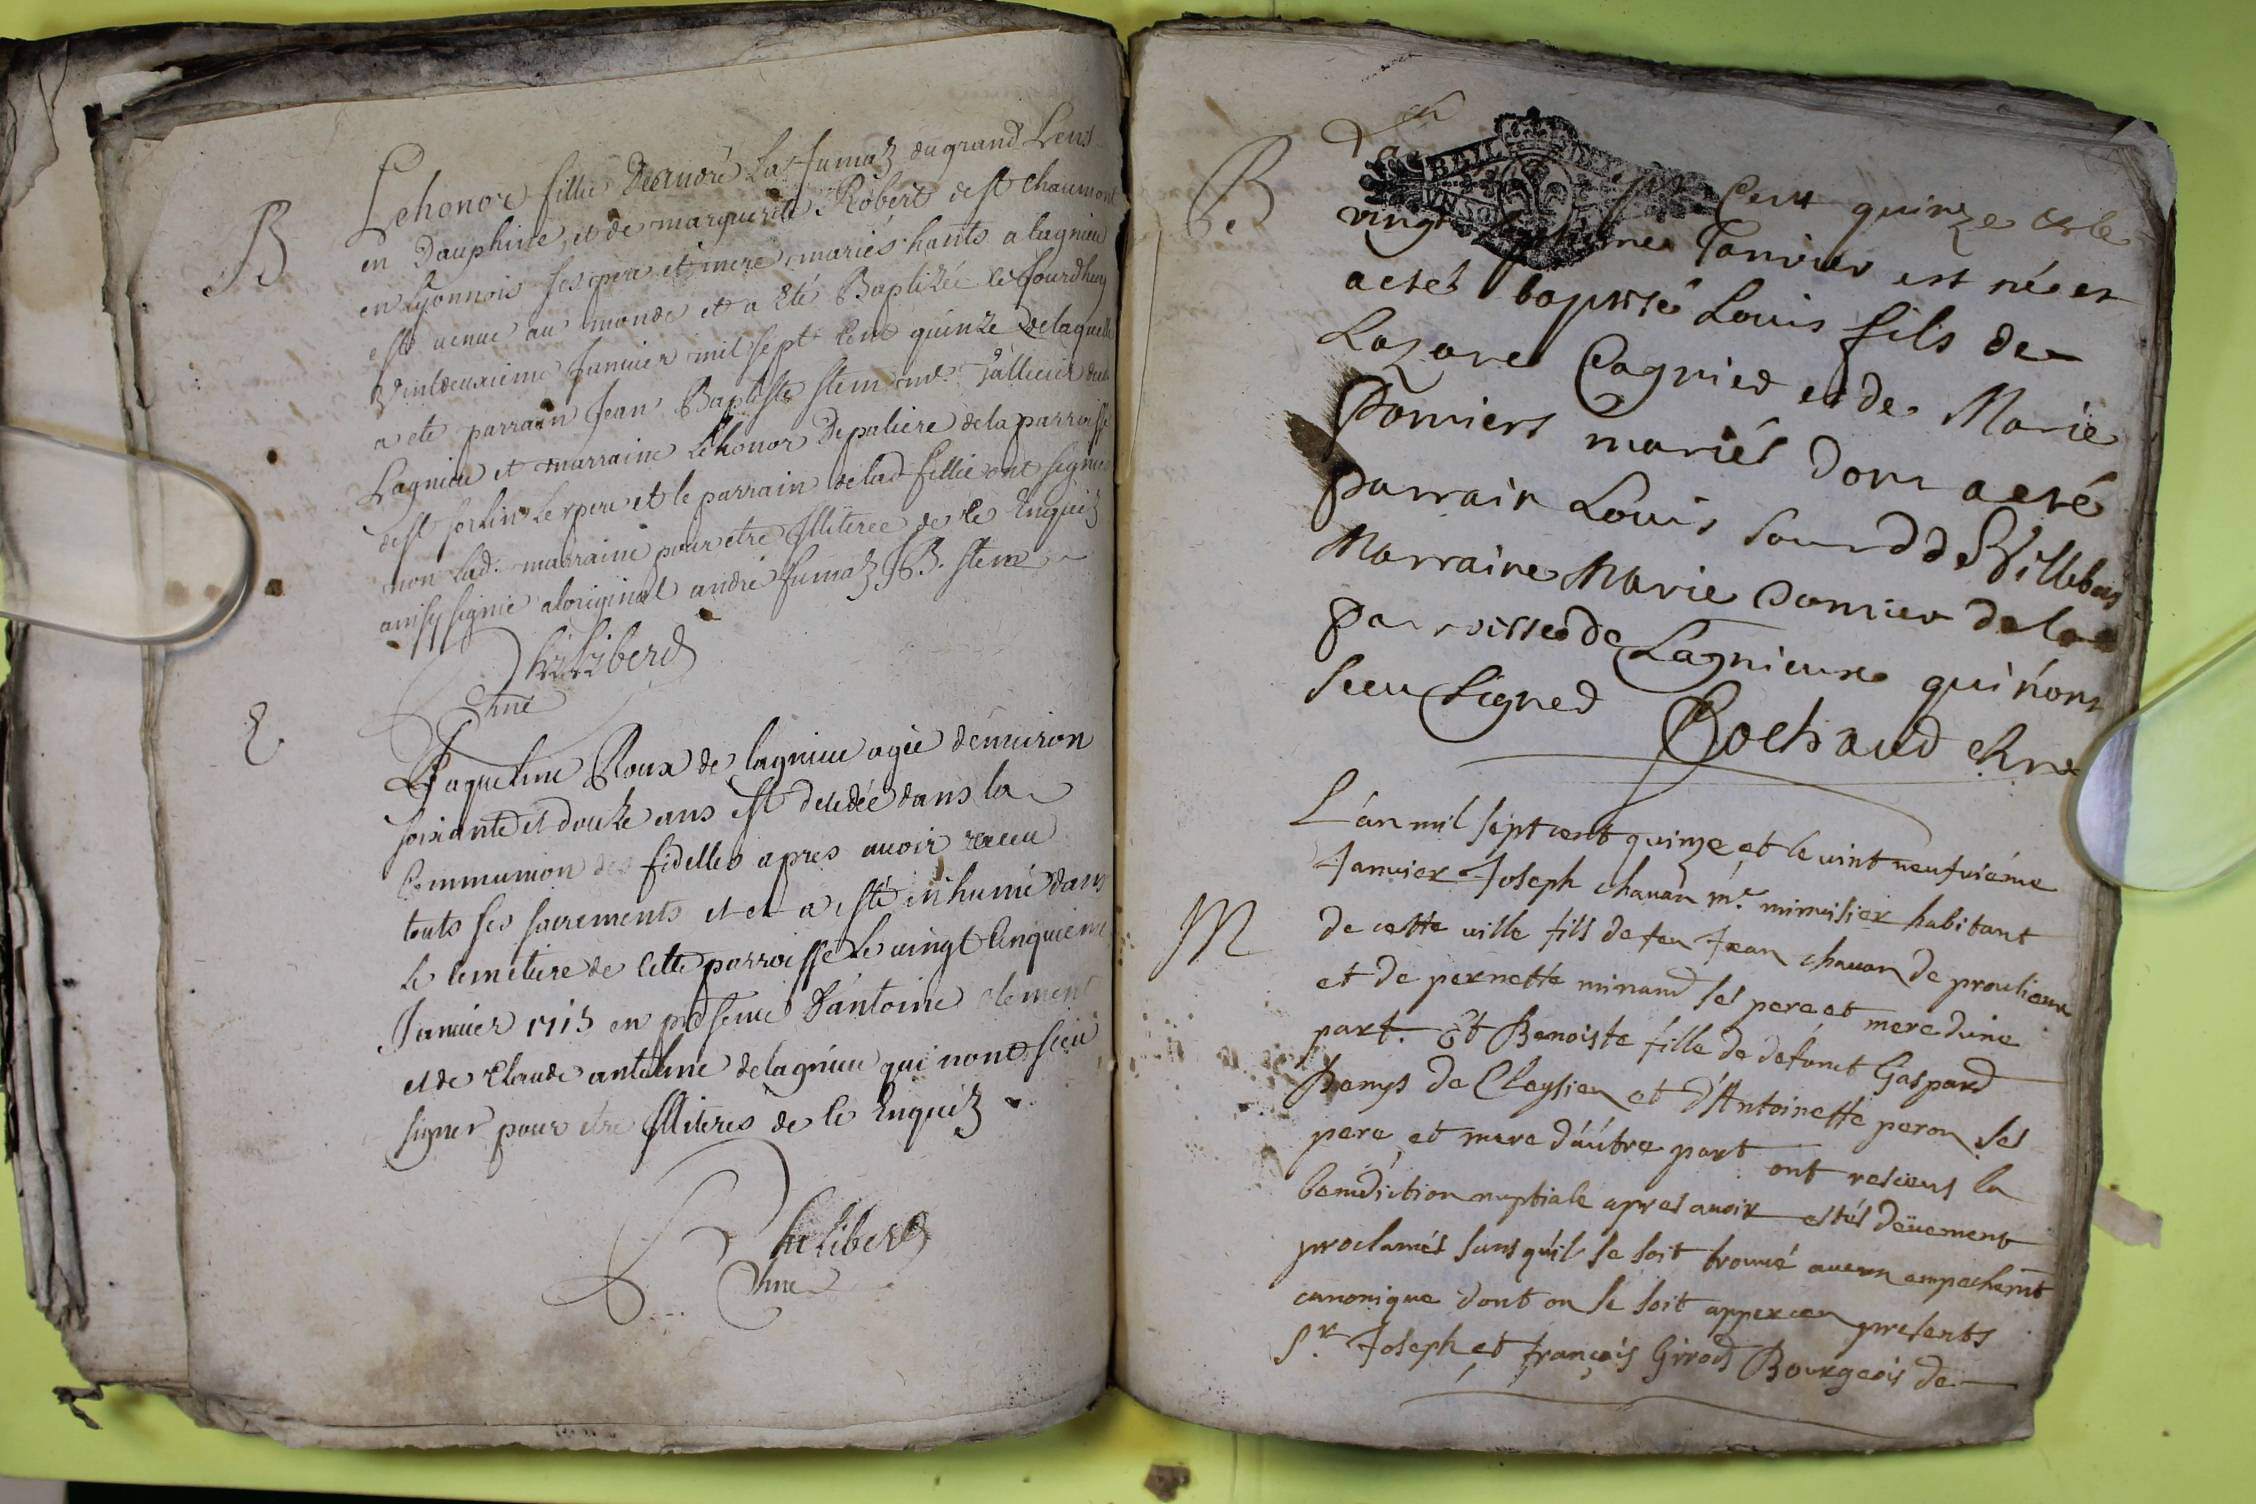 B
Lehonore fillie De André La fumaz du grand Lens
en Dauphiné, et de marguerite Robert de st chaumont
en Lyonnois ses pere et mere mariés hants a lagnieu
est venue au monde et a Eté Baptizéé cejourdhuy
Vintdeuxieme Januier mil sept Cent quinze de laquelle
a eté parrain Jean Baptiste stem me Tallieur de
Lagnieu et marraine Lehonor Depaliere de la parroisse
de st sorlin Le pere et le parrain de lad fillie ont signés
non Lad. marraine pour etre Illiteree de ce Enquis
ainsy signé aloriginal andré fumaz JB. stem
Philiberd
E
Jaqueline Roux de lagnieu agéé d'enuiron
soixante et douze ans est decedéé dans la
Communion des fidelles apres auoir receu
touts ses sacrements et et a esté inhumé dans
le Cemetiere de Cette parroisse Le vingt Cinquieme
Januier 1715 en presence D'antoine Clement
et de Claude antoine de lagnieu qui nont sceu
signer pour etre Illiteres de ce Enquiz
Philiberd
B
Lan
Cent quinze et le
vingt Janvier est né et
a esté baptisé Louis fils de
Lazare Cagnied et de Marie
Pomiers mariés dont a eté
parrain Louis Sourd de Villebois
Marraine Marie Pomier de la
parroisse de Lagnieux qui nont
sceu signed Cochaud
L'án mil sept cent quinze et le uint neufuiéme
Januier Joseph chauan me minusier habitant
M
de cette uille fils de feu Jean chauan de proulieux
et de pernette minand ses pere et mere d'une
part. Et Benoiste fille de defunct Gaspard
Denys de Cleysieu et d'Antoinette peron ses
pere et mere d'aútre part ont resceus la
benediction nuptiale apres auoir estés deüement
proclamés sans quil se soit trouué aucun empechemt
canonique dont on se soit apperceu presents
Sr. Joseph et françois Girod Bourgeois de